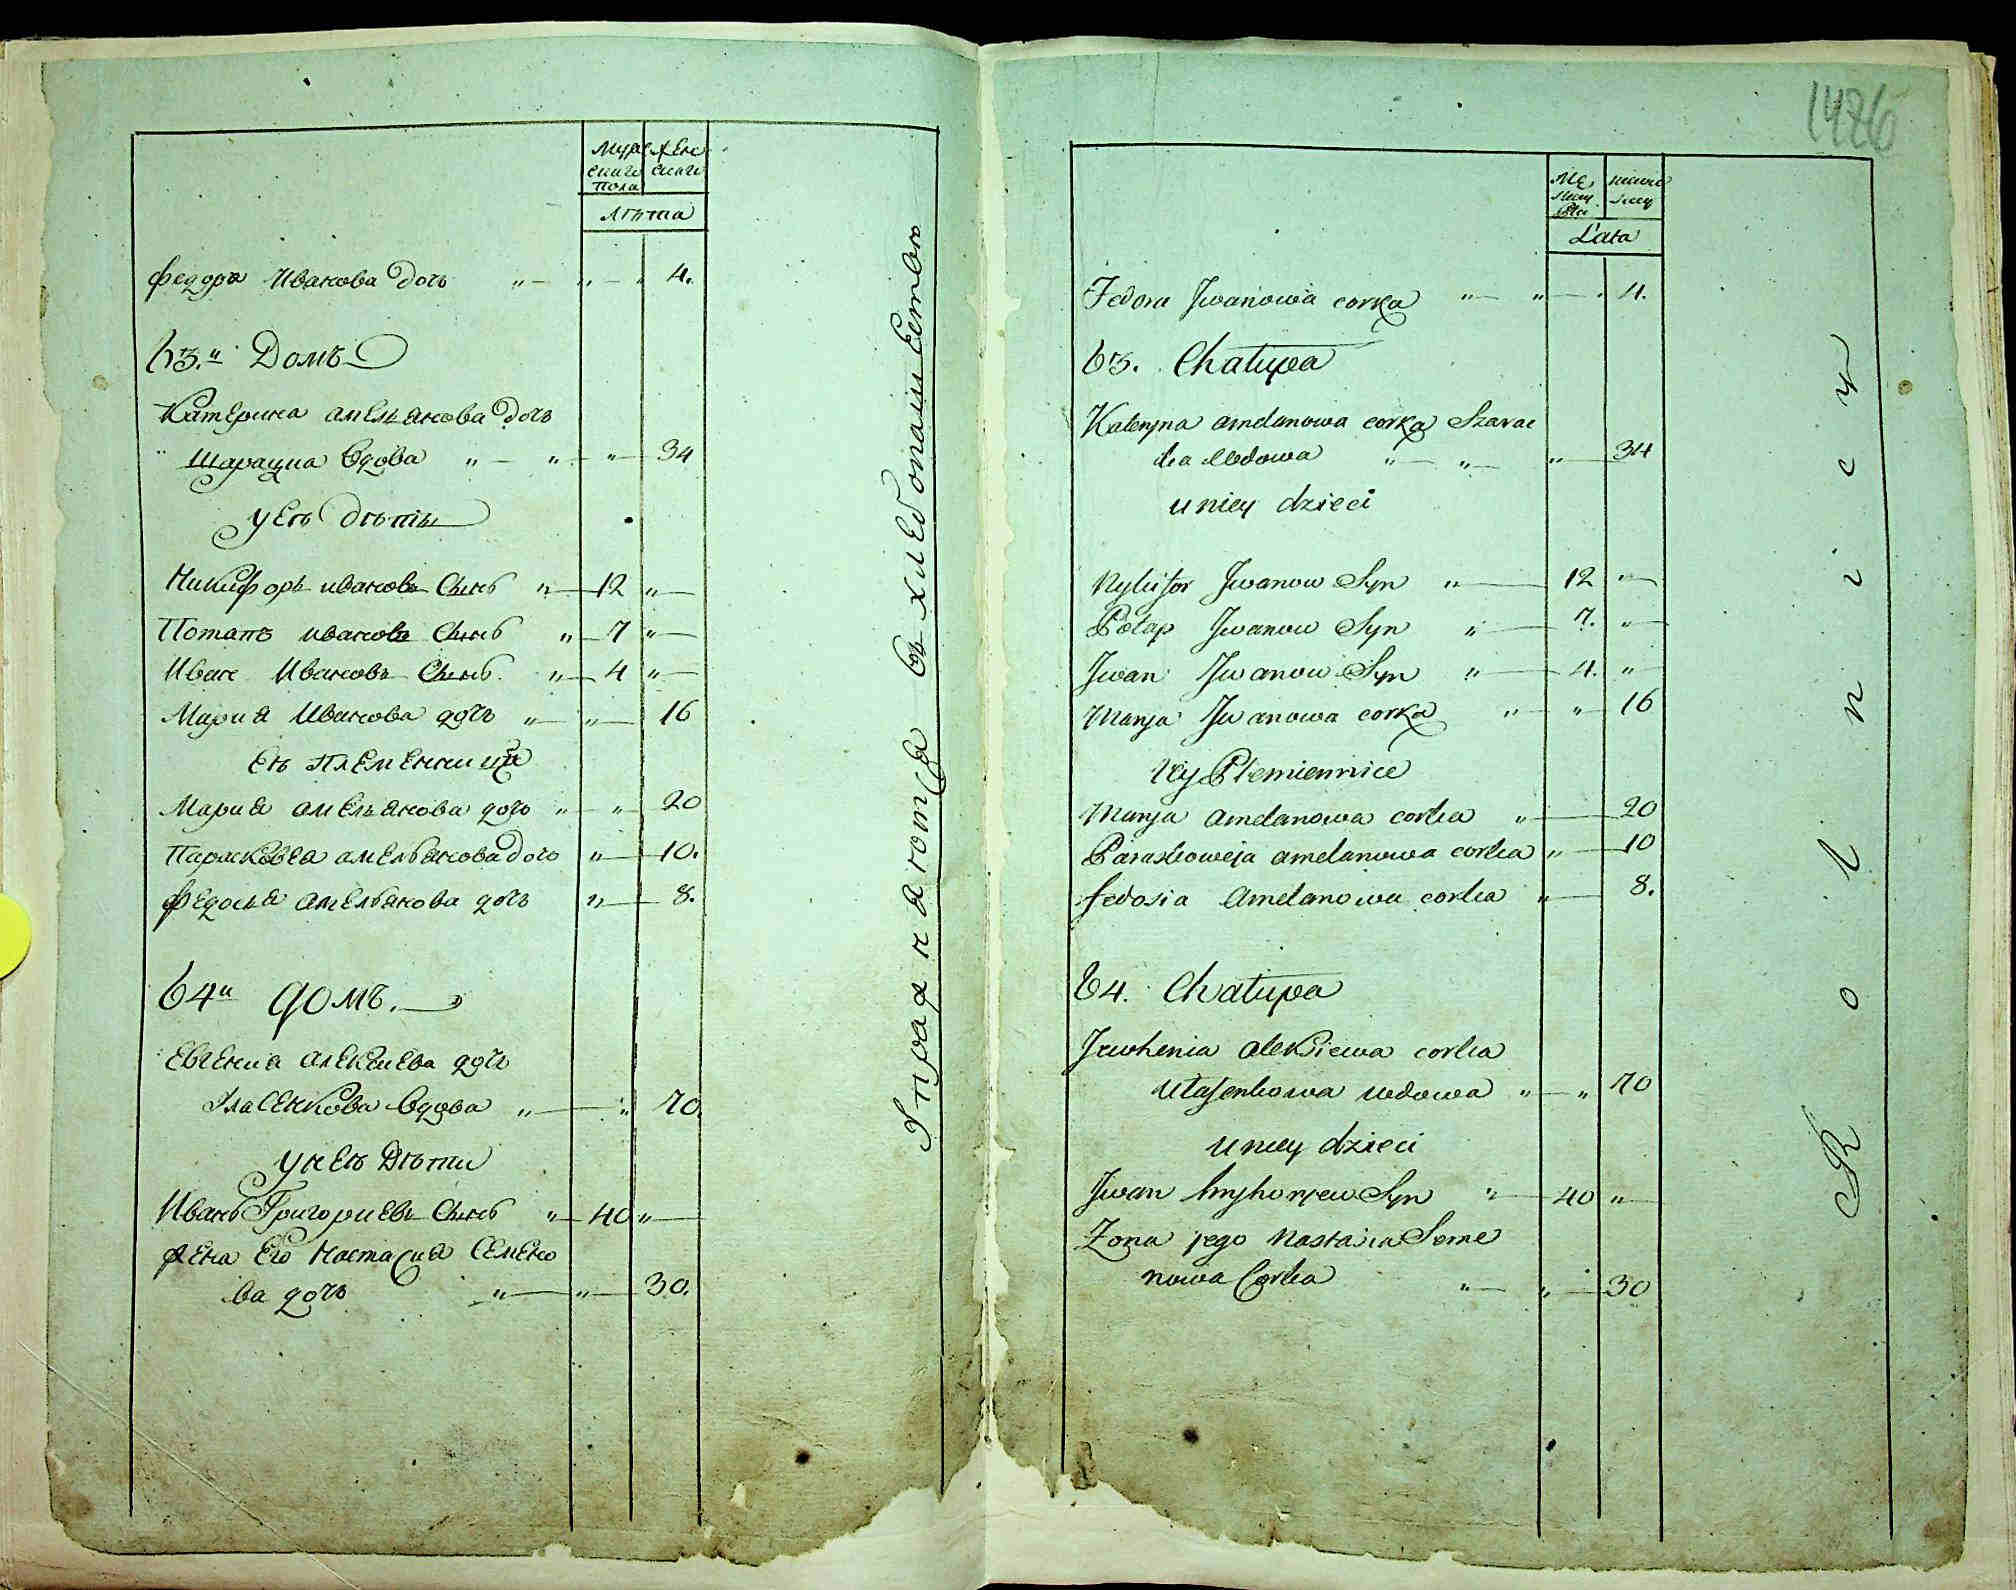 Муже Жен
скаго скаго
пола
Лѣта
Федора Иванова дочь " — " — " 4.
63.й Домъ
Катерина амельянова дочь
Шарацка вдова " — " — " — 34
у ей дѣти
Никифоръ ивановъ Сынъ " — 12 " —
Потапъ ивановъ Сынъ " — 7 " —
Иванъ Ивановъ Сынъ " — 4 " —
Мария Иванова дочь " — " — 16
ей племенницы
Мария амельянова дочь " — " — 20
Парасковея амельянова дочь " — 10.
Федосья амельянова дочь " — 8.
64й домъ.
Евгения алексиева дочь
Уласенкова вдова " — " 70.
у ней дѣти
Иванъ Григориевъ Сынъ " — 40 " —
жена его Настасия Семено
ва дочь " — " — 30.
Упражняются въ хлебопашествѣ
1426
Mę żeńs
skiey skiey
płci
Lata
Fedora Jwanowa corka " — " — " 4.
63. Chałupa
Kateryna amelanowa corka Szarac
ka wdowa " — " — " — 34
u niey dzieci
Nykifor Jwanow Syn " — 12 " —
Potap Jwanow Syn " — 7. " —
Jwan Jwanow Syn " — 4. " —
Marya Jwanowa corka " — " — 16
iey Plemiennice
Marya amelanowa corka " — 20
Paraskoweja amelanowa corka " — 10
fedosia amelanowa corka " — 8.
64. Chałupa
Jewhenia alexiewa corka
Ułasenkowa wdowa " — " 70
u niey dzieci
Jwan hryhoryew Syn " — 40 " —
Zona jego Nastasia Seme
nowa Corka " — " — 30
Rolnicy